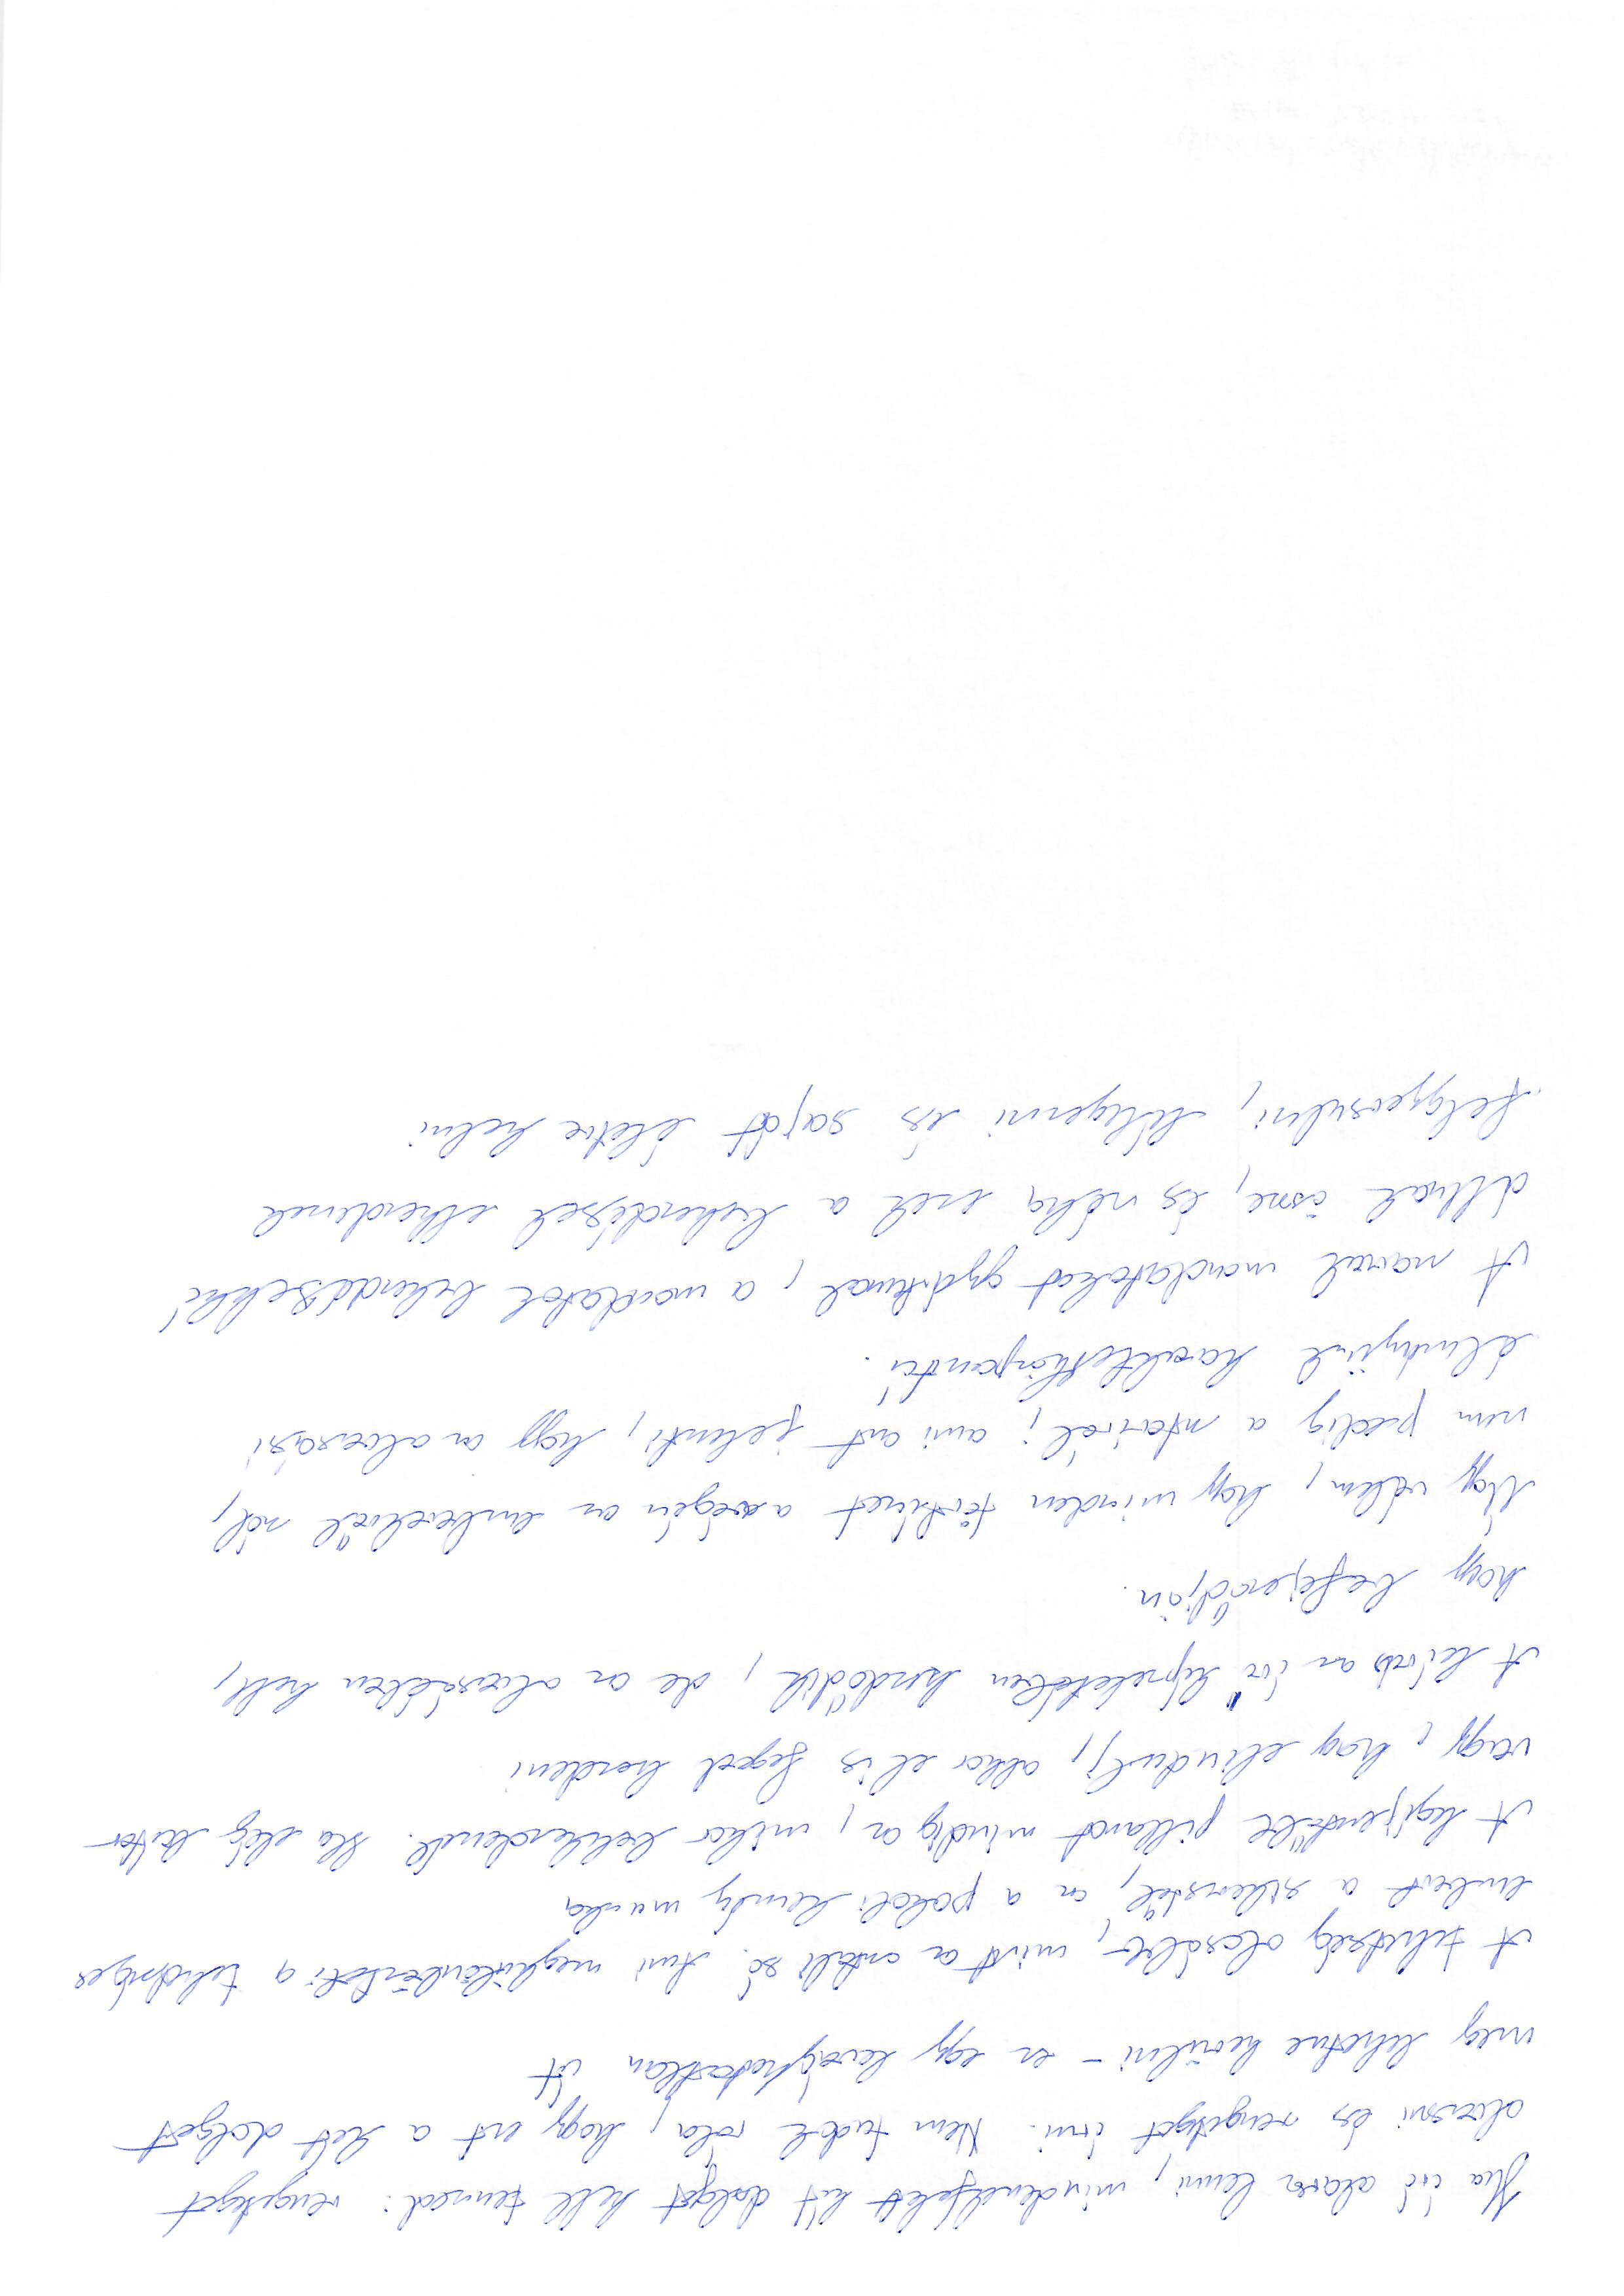 Ha író akarsz lenni, mindenekfelett két dolgot kell tenned: rengeteget
olvasni és rengeteget írni. Nem tudok róla, hogy ezt a két dolgot
meg lehetne kerülni - ez egy levághatatlan út
A tehetség olcsóbb, mint az asztali só. Ami megkülönbözteti a tehetséges
embert a sikerestől, az a pokoli kemény munka
A legijesztőbb pillanat mindig az, mikor belekezdenél. Ha elég bátor
vagy, hogy elindulj, akkor el is fogod kezdeni
A leírás az író képzeletében kezdődik, de az olvasóéban kell,
hogy befejeződjön.
Úgy vélem, hogy minden történet a végén az emberekről szól,
nem pedig a sztoriról; ami azt jelenti, hogy az olvasási
élményünk karakterközpontú.
A szavak mondatokat gyártanak, a mondatok bekezdésekké
állnak össze, és néha ezek a bekezdések elkezdenek
felgyorsulni, lélegezni és saját életre kelni